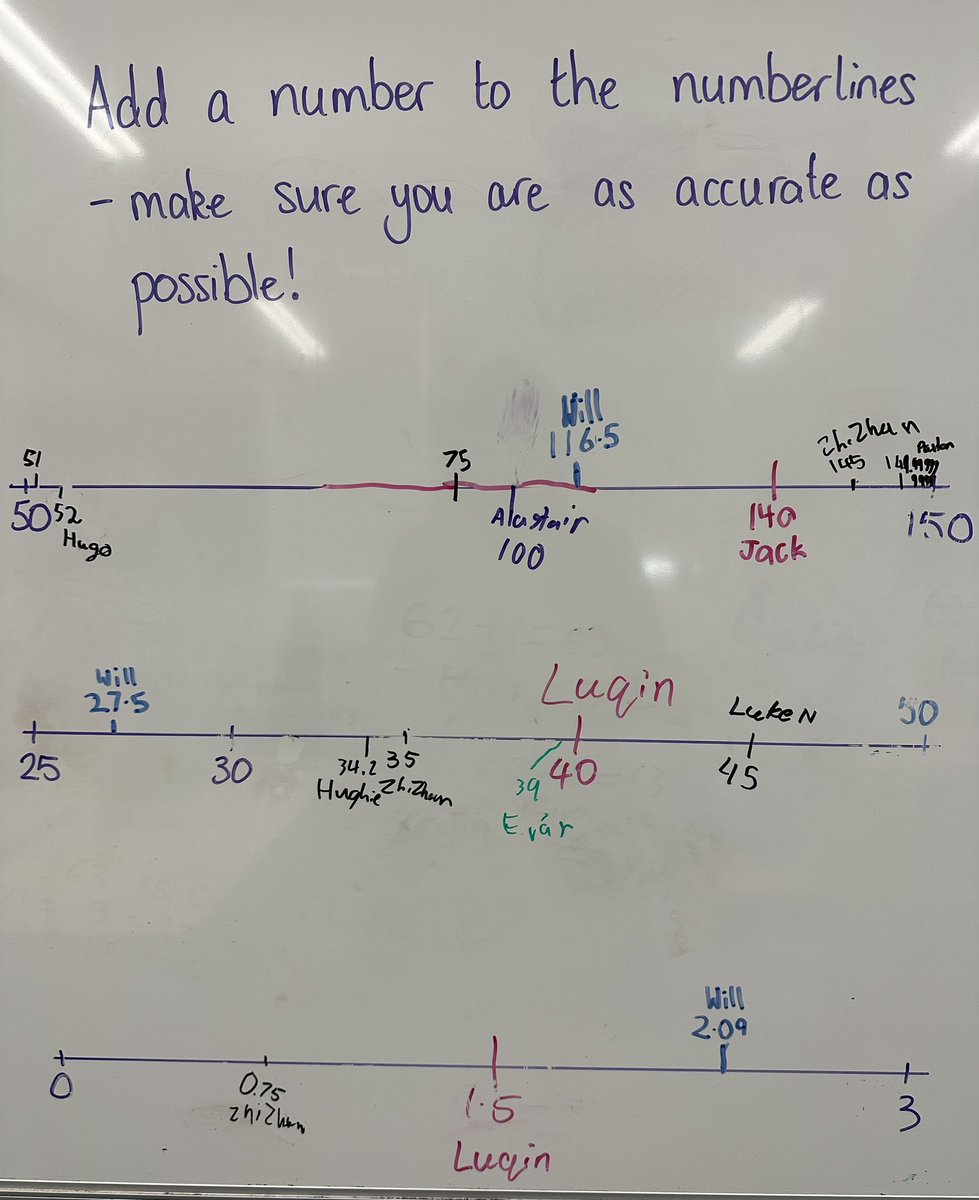 Add a number to the numberlines
- make sure you are as accurate as
possible!
Will
116.5
ZhiZhan
145
51
75
50
52
Hugo
Alastair
100
140
Jack
150
Will
27.5
Luqin
Luke N
50
25
30
34.2
Hughie
35
ZhiZhan
39
40
45
Will
2.09
0
0.75
ZhiZhan
1.5
Luqin
3